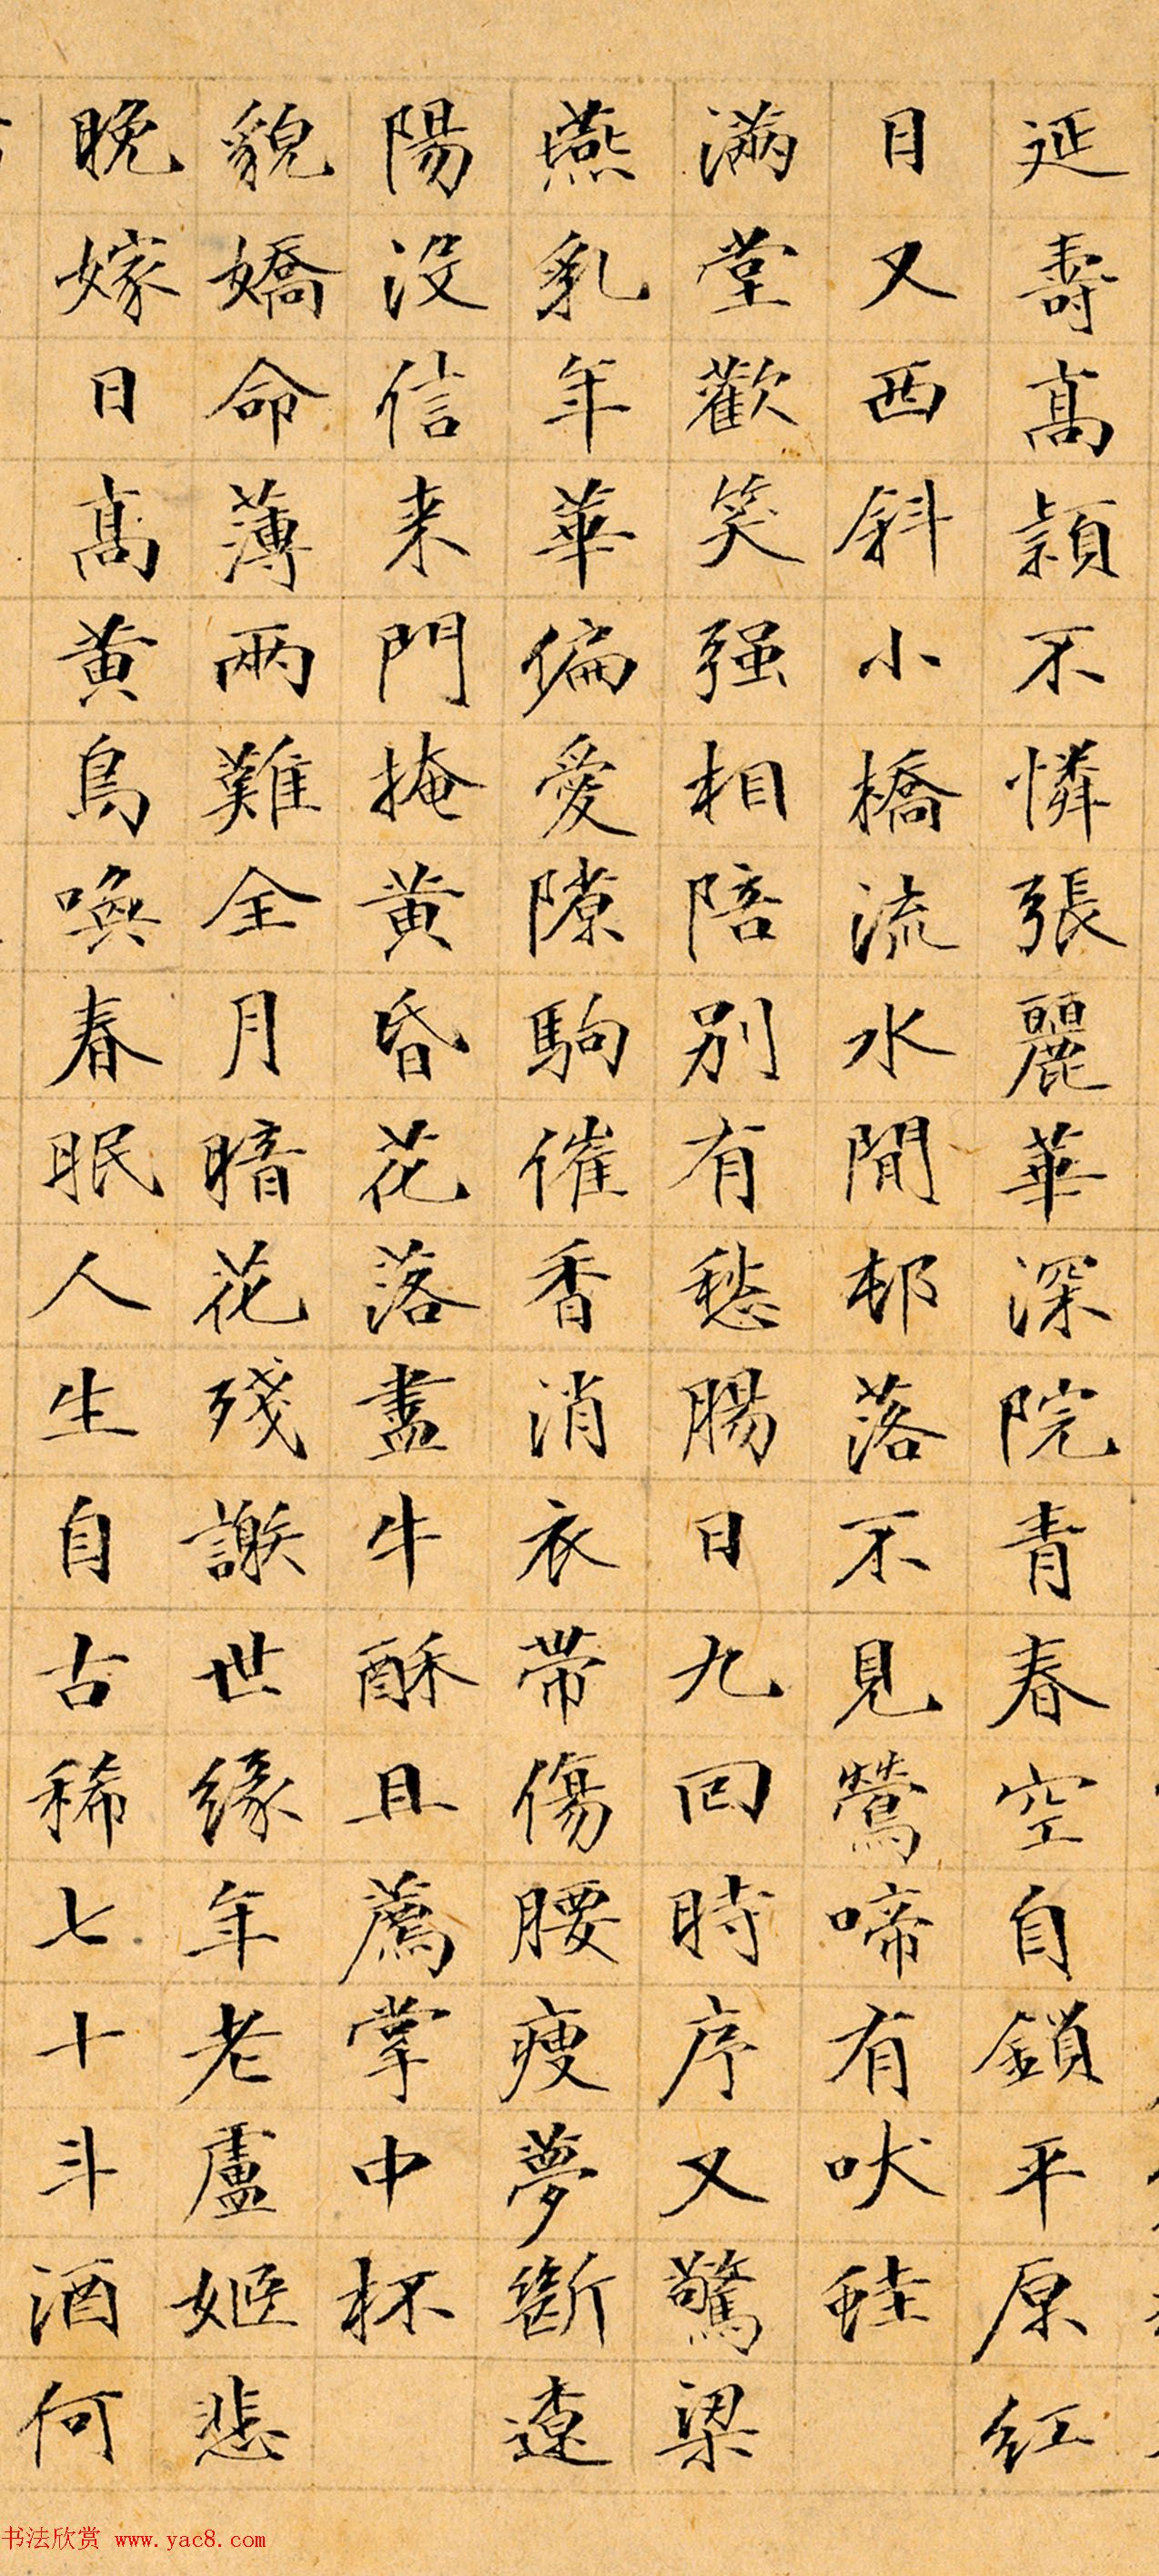 延壽高頴不憐張麗華深院青春空自鎖平原紅
日又西斜小橋流水閒邨落不見鶯啼有吠蛙
滿堂歡笑强相陪別有愁腸日九回時序又驚梁
燕乳年華偏愛隙駒催香消衣帶傷腰瘦夢斷遼
陽沒信来門掩黄昏花落盡牛酥且薦掌中杯
貌嬌命薄兩難全月暗花殘謝世緣年老盧姬悲
晚嫁日高黄鳥喚春眠人生自古稀七十斗酒何
书法欣赏 www.yac8.com